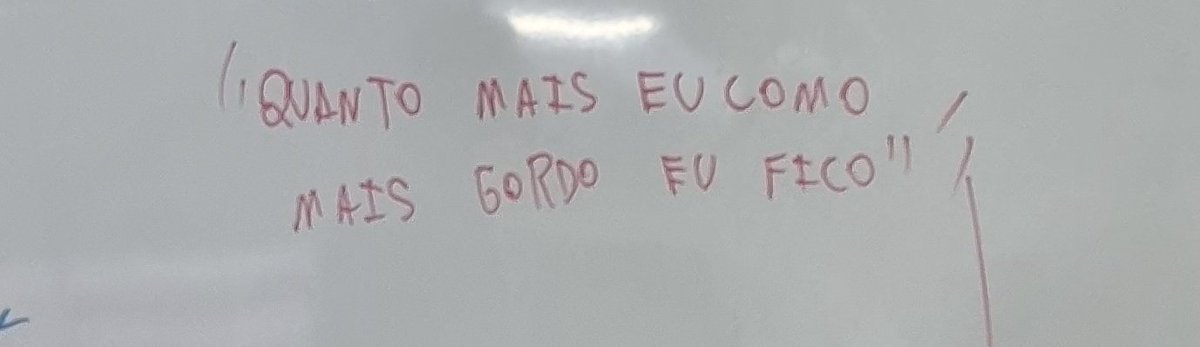 "QUANTO MAIS EU COMO
MAIS GORDO EU FICO"